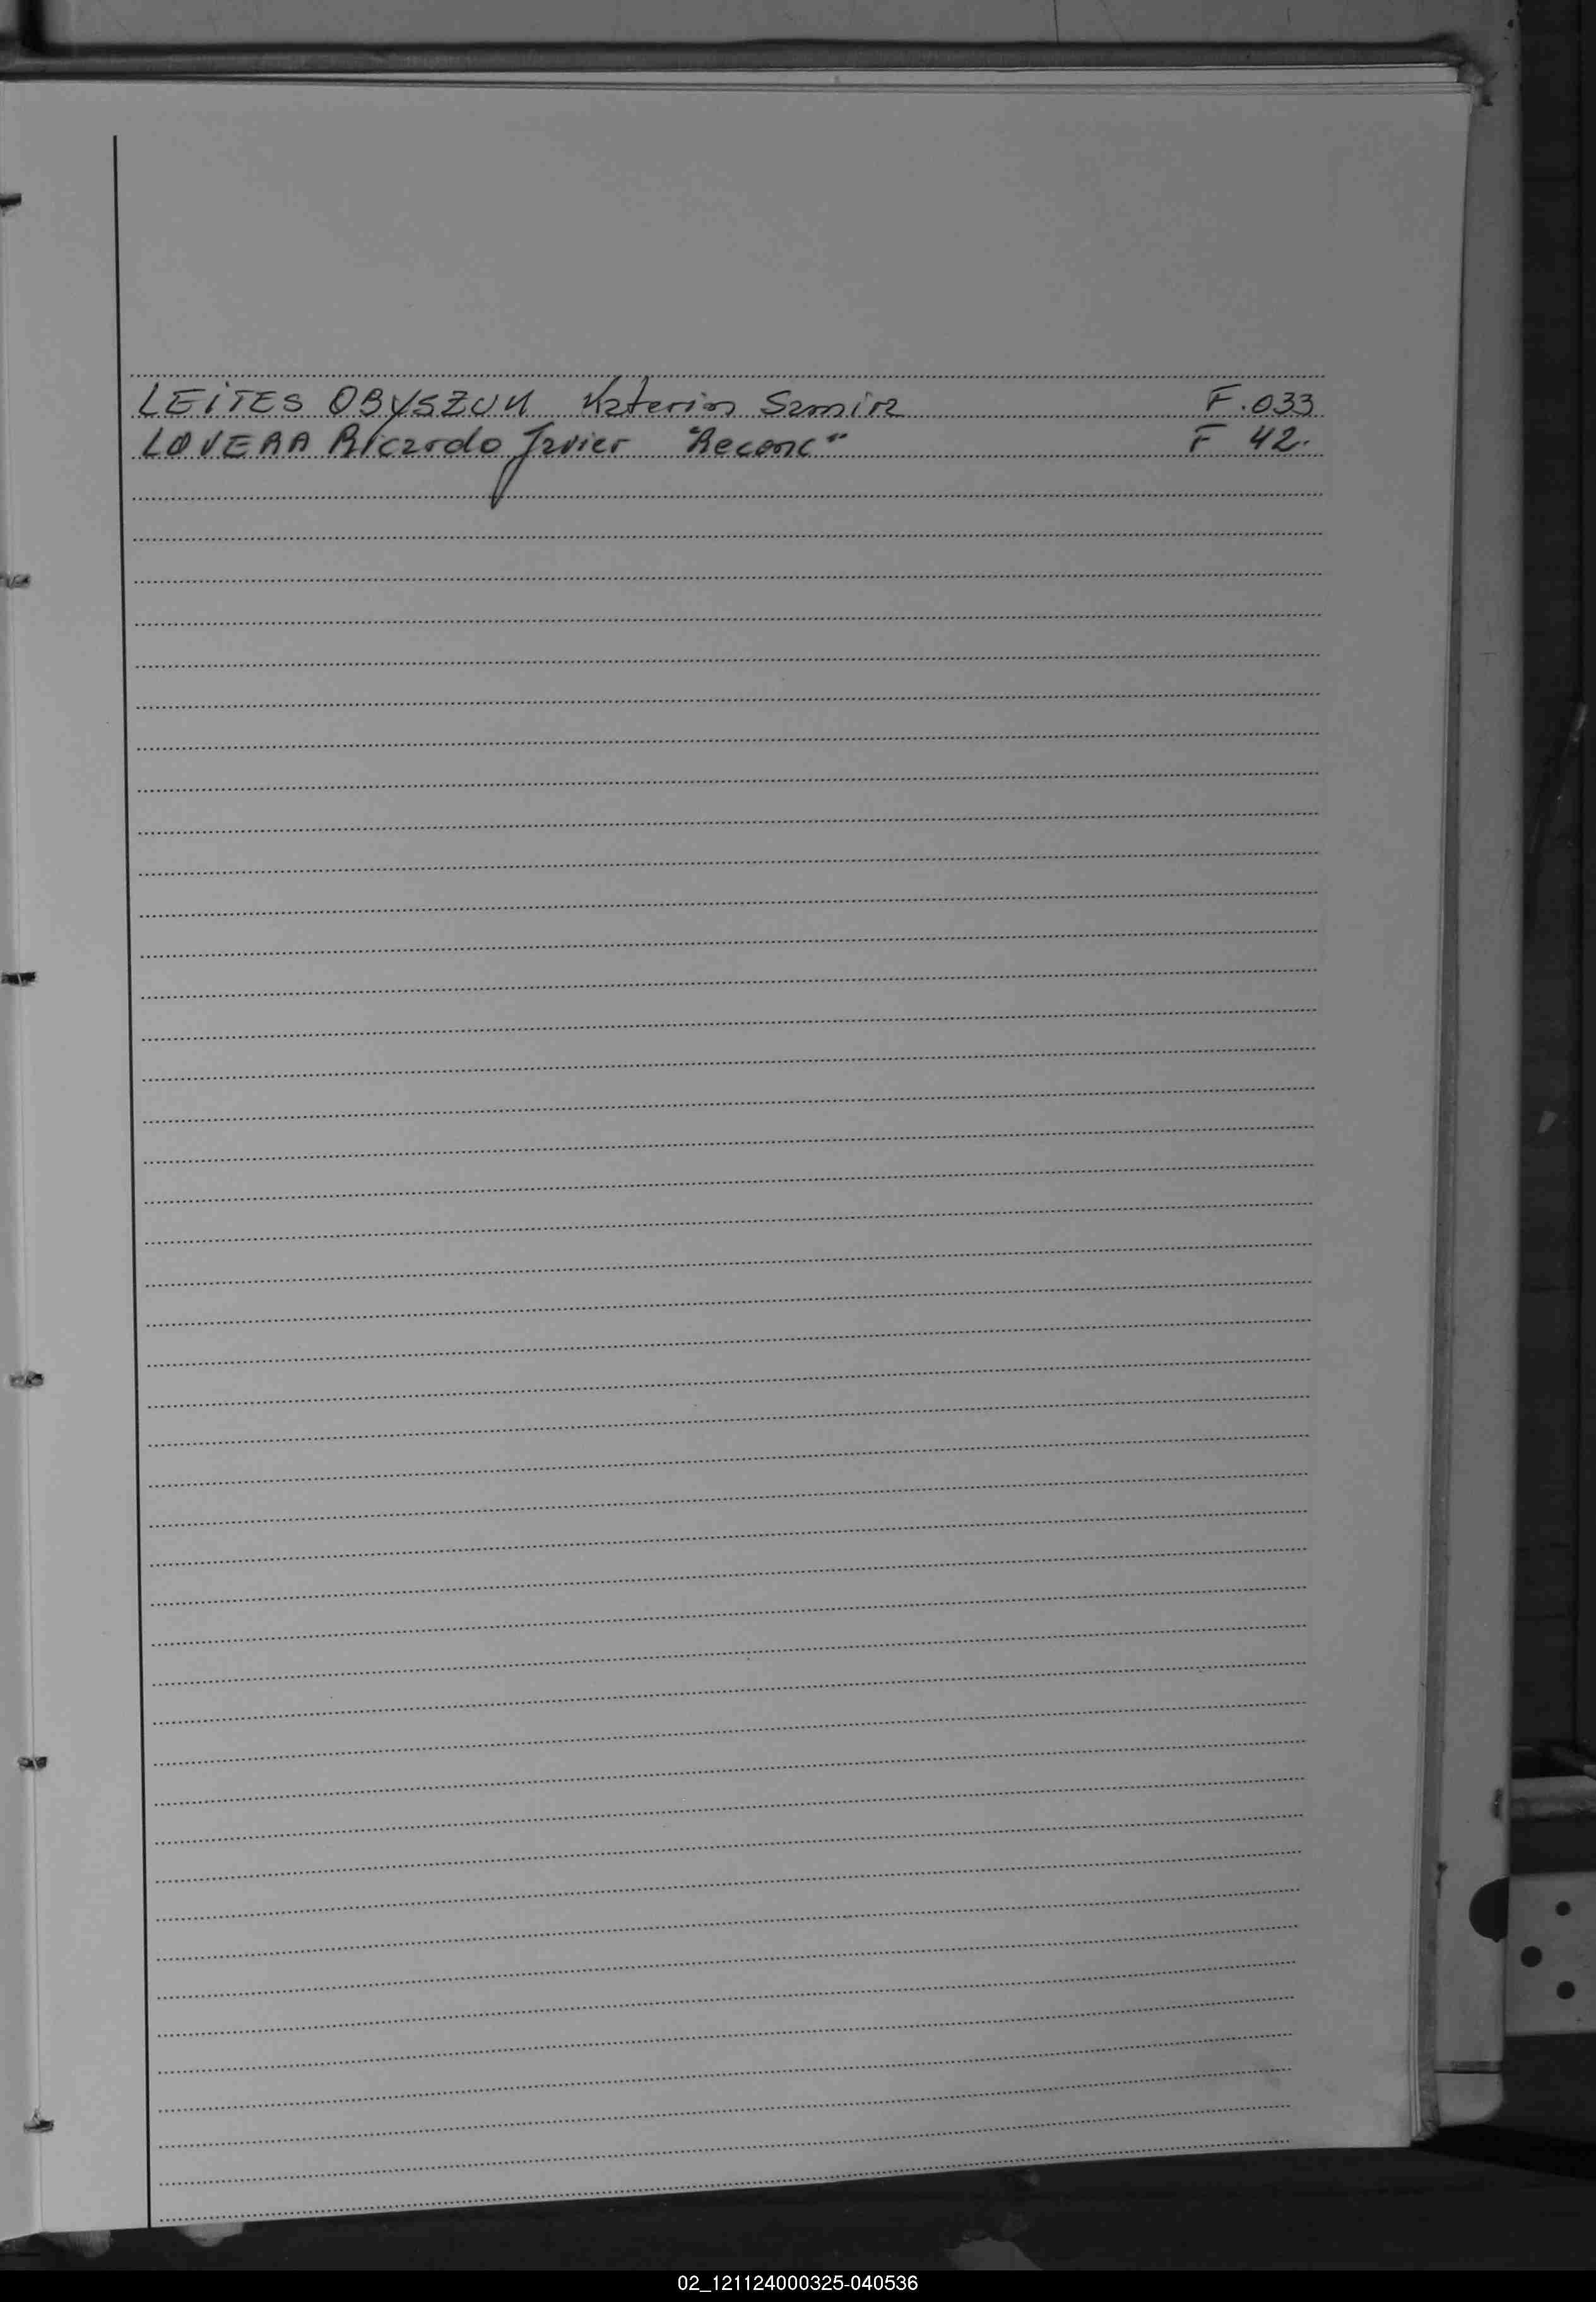 LEITES OBYSZUK Katerin Samira F.033
LOVERA Ricardo Javier "Reconc" F 42.
02_121124000325-040536